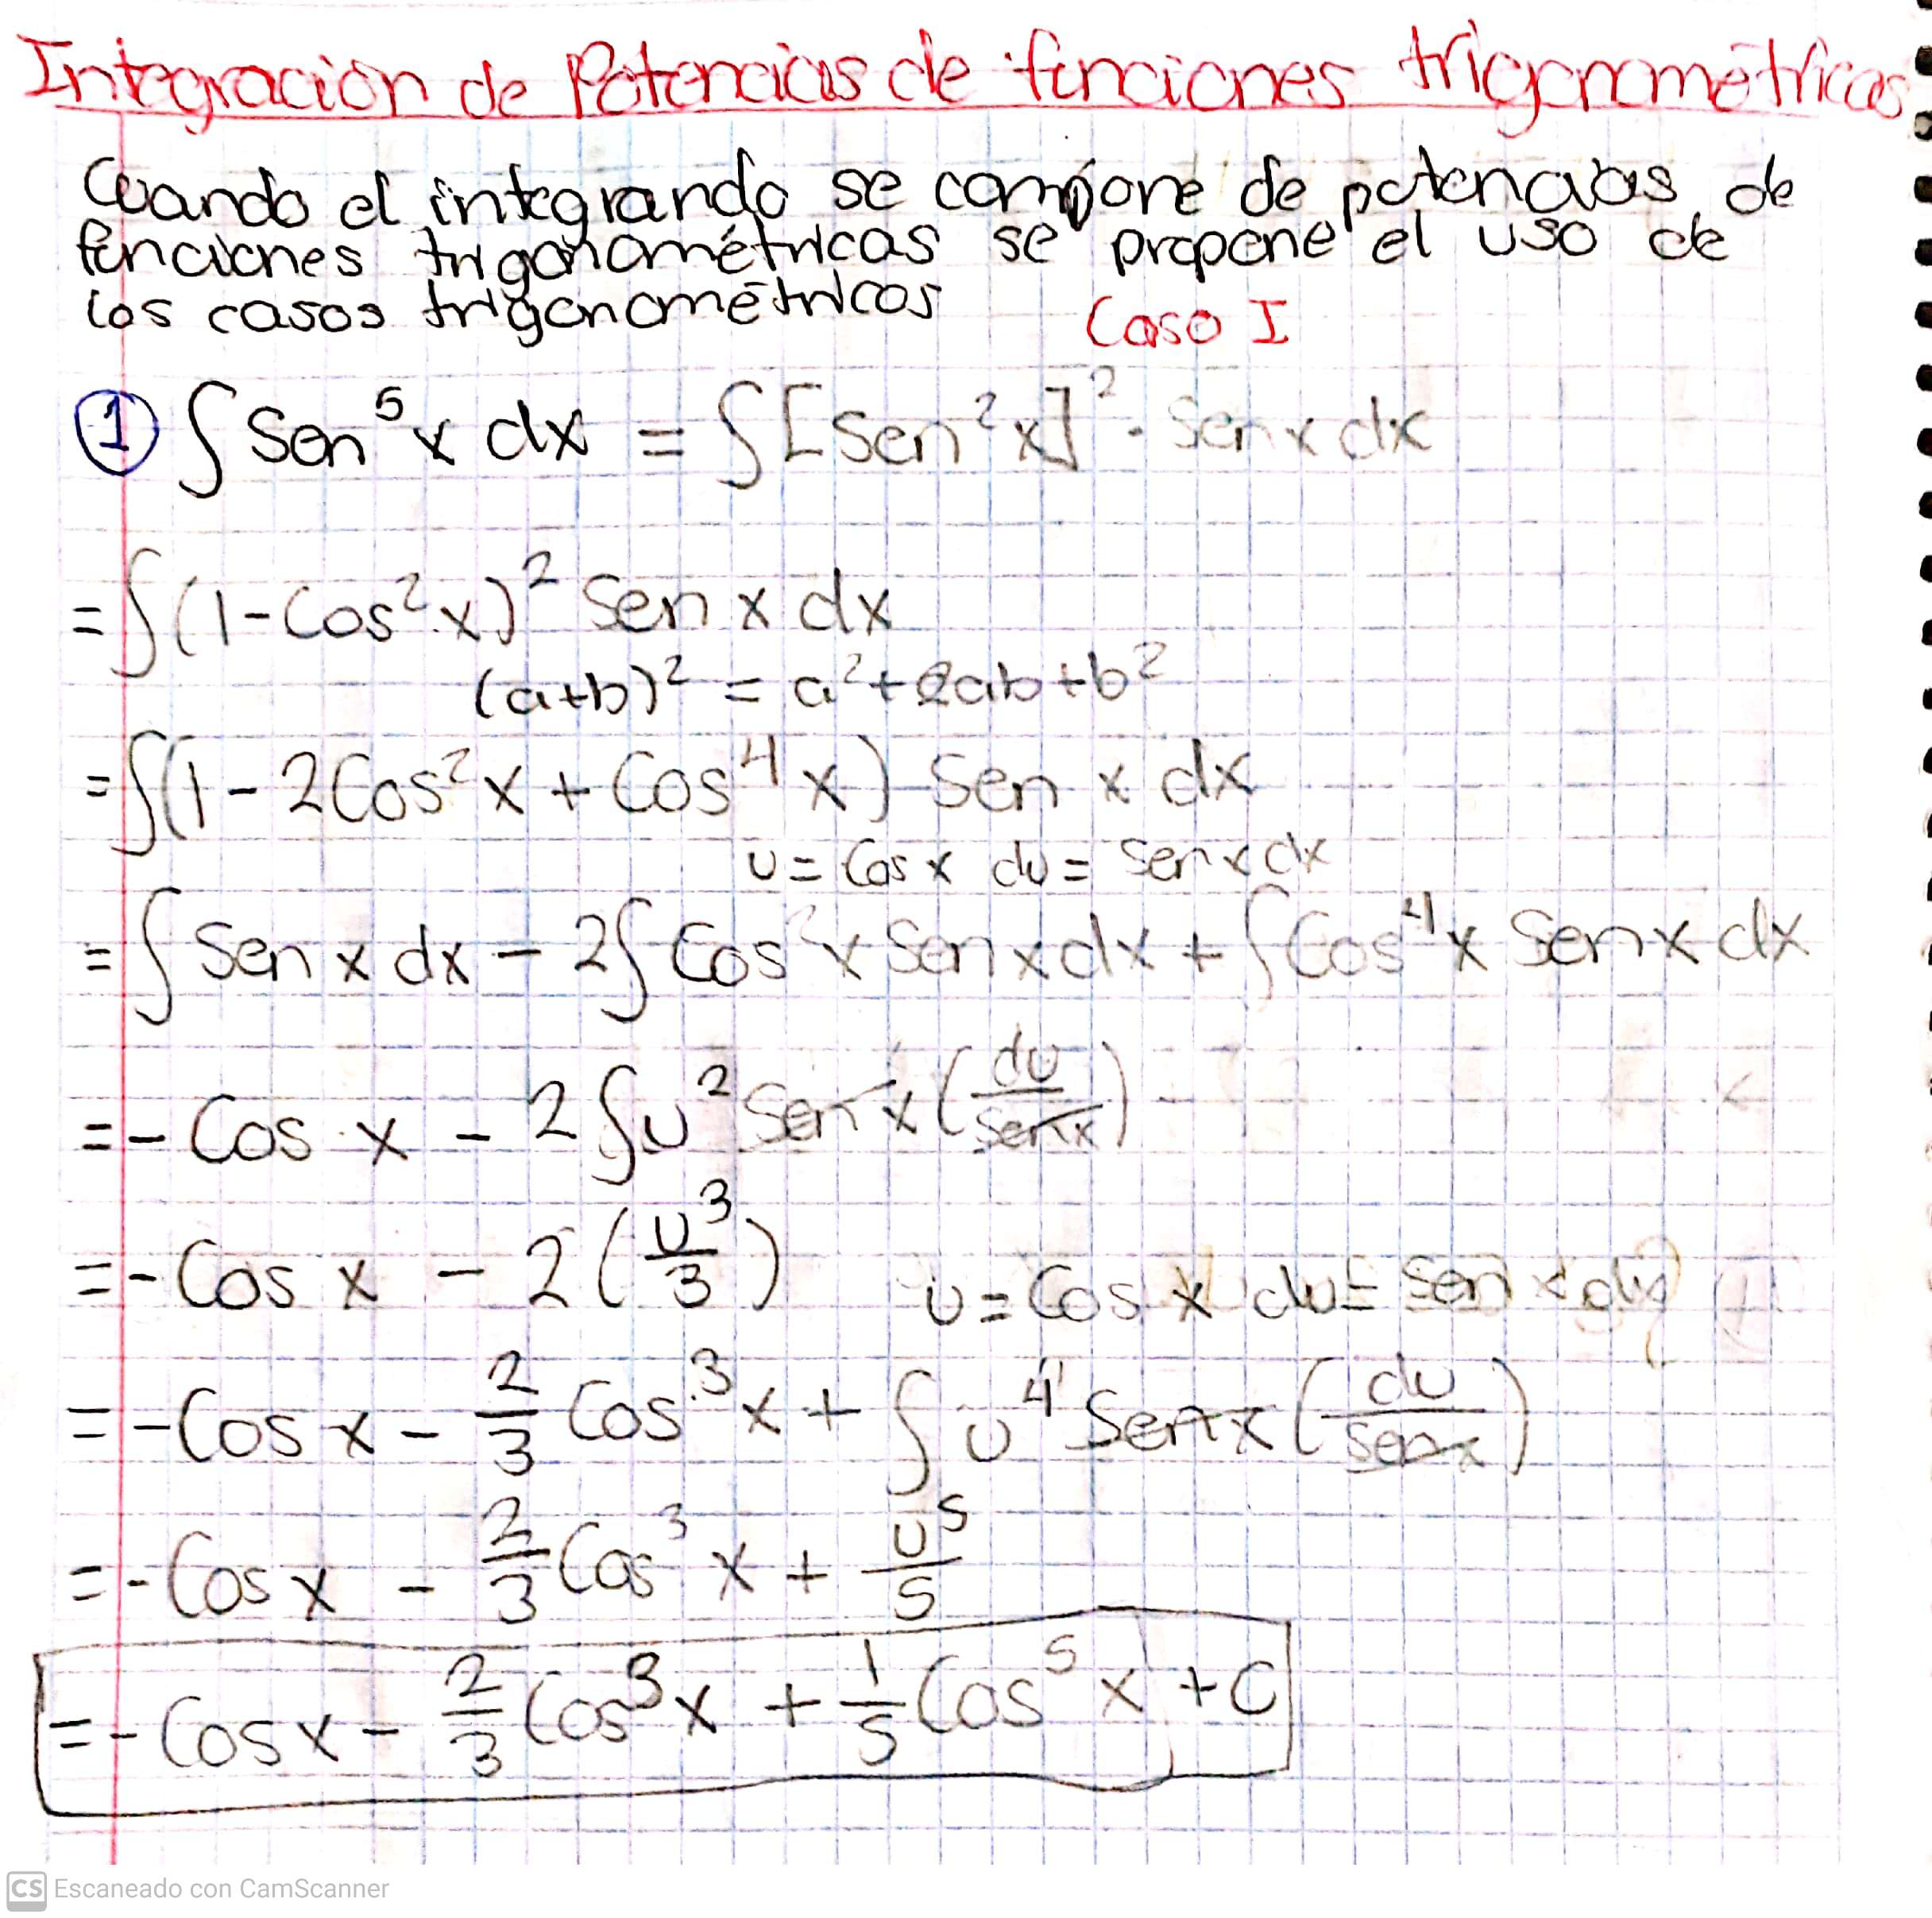 Integración de Potencias de funciones trigonométricas
Cuando el integrando se compone de potencias de
funciones trigonométricas se propone el uso de
los casos trigonométricos
Caso I
① ∫ Sen⁵ x dx = ∫ [Sen² x]² · Sen x dx
= ∫ (1 - Cos² x)² Sen x dx
(a+b)² = a² + 2ab + b²
= ∫ (1 - 2Cos² x + Cos⁴ x) Sen x dx
u = Cos x du = Sen x dx
= ∫ Sen x dx - 2∫ Cos² x Sen x dx + ∫ Cos⁴ x Sen x dx
= - Cos x - 2 ∫ u² Sen x (du/Sen x)
= - Cos x - 2 (u³/3) u = Cos x du = Sen x dx
= - Cos x - 2/3 Cos³ x + ∫ u⁴ Sen x (du/Sen x)
= - Cos x - 2/3 Cos³ x + u⁵/5
= - Cos x - 2/3 Cos³ x + 1/5 Cos⁵ x + C
CS Escaneado con CamScanner